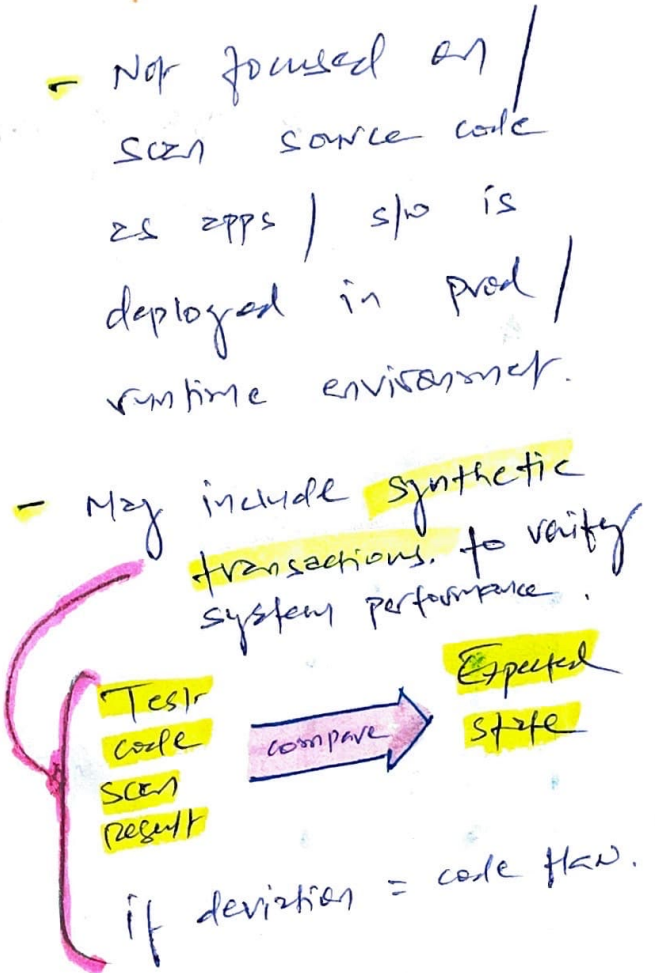 - Not focused on /
scan source code
as apps / s/w is
deployed in prod /
runtime environment.
- May include synthetic
transactions. to verify
system performance.
Test
code
scan
result
compare
Expected
state
if deviation = code flaw.